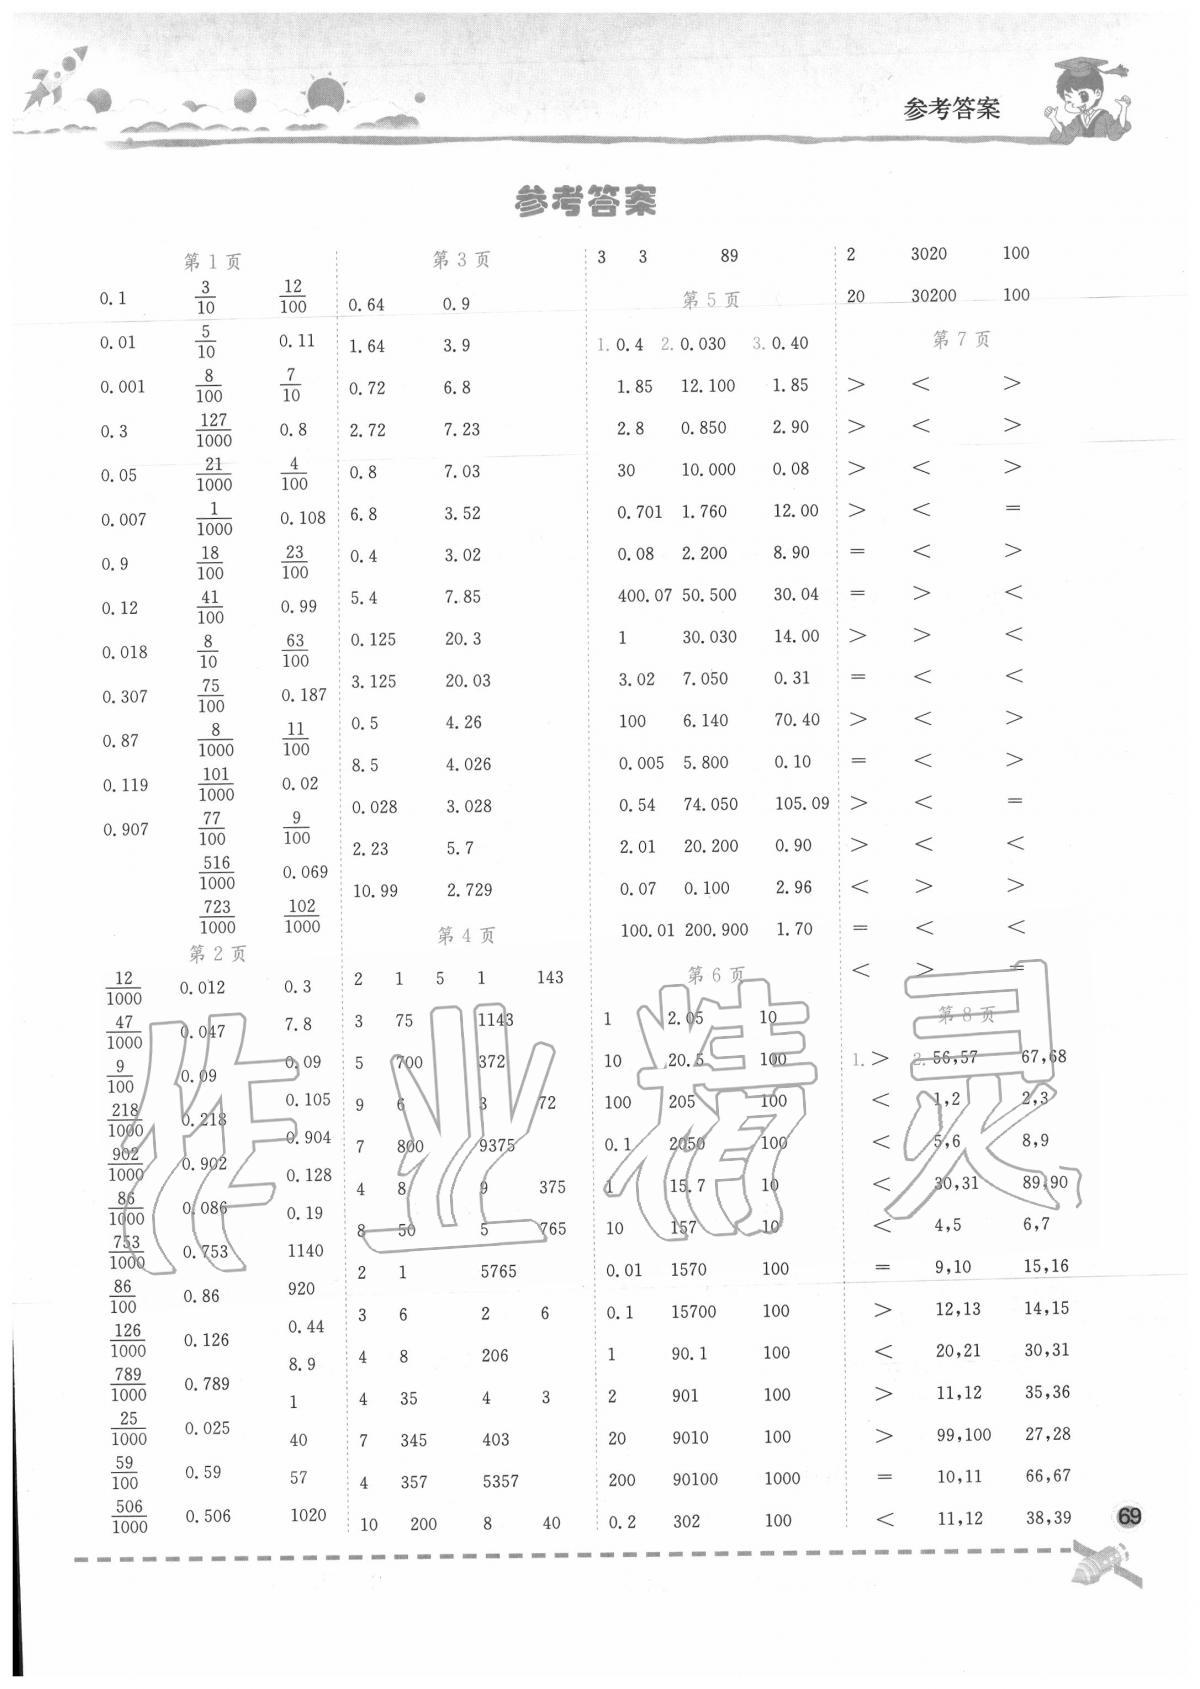 参考答案
参考答案
第1页
0.1 3/10 12/100
0.01 5/10 0.11
0.001 8/100 7/10
0.3 127/1000 0.8
0.05 21/1000 4/100
0.007 1/1000 0.108
0.9 18/100 23/100
0.12 41/100 0.99
0.018 8/10 63/100
0.307 75/100 0.187
0.87 8/1000 11/100
0.119 101/1000 0.02
0.907 77/100 9/100
516/1000 0.069
723/1000 102/1000
第2页
12/1000 0.012 0.3
47/1000 0.047 7.8
9/100 0.09 0.09
218/1000 0.218 0.105
902/1000 0.902 0.904
86/1000 0.086 0.128
753/1000 0.753 0.19
86/100 0.86 1140
126/1000 0.126 920
789/1000 0.789 0.44
25/1000 0.025 8.9
59/100 0.59 1
506/1000 0.506 40
57
1020
第3页
0.64 0.9
1.64 3.9
0.72 6.8
2.72 7.23
0.8 7.03
6.8 3.52
0.4 3.02
5.4 7.85
0.125 20.3
3.125 20.03
0.5 4.26
8.5 4.026
0.028 3.028
2.23 5.7
10.99 2.729
第4页
2 1 5 1 143
3 75 1143
5 700 372
9 6 3 72
7 800 9375
4 8 9 375
8 50 5 765
2 1 5765
3 6 2 6
4 8 206
4 35 4 3
7 345 403
4 357 5357
10 200 8 40
3 3 89
第5页
1. 0.4 2. 0.030 3. 0.40
1.85 12.100 1.85
2.8 0.850 2.90
30 10.000 0.08
0.701 1.760 12.00
0.08 2.200 8.90
400.07 50.500 30.04
1 30.030 14.00
3.02 7.050 0.31
100 6.140 70.40
0.005 5.800 0.10
0.54 74.050 105.09
2.01 20.200 0.90
0.07 0.100 2.96
100.01 200.900 1.70
第6页
1 2.05 10
10 20.5 100
100 205 100
0.1 2050 100
1 15.7 10
10 157 10
0.01 1570 100
0.1 15700 100
1 90.1 100
2 901 100
20 9010 100
200 90100 1000
0.2 302 100
2 3020 100
20 30200 100
第7页
> < >
> < >
> < >
> < =
= < >
= > <
> > <
= < <
> < >
= < >
> < =
> < <
< > >
= < <
< > =
第8页
1. > 2. 56,57 67,68
< 1,2 2,3
< 5,6 8,9
< 30,31 89,90
< 4,5 6,7
= 9,10 15,16
> 12,13 14,15
< 20,21 30,31
> 11,12 35,36
> 99,100 27,28
= 10,11 66,67
< 11,12 38,39
69
作业精灵